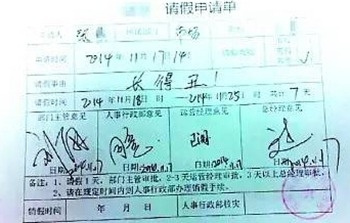 请假申请单
申请时间 2014年11月17日14时
请假事由 长得丑！
请假时间 2014年11月18日 时 2014年11月25日 时 共计 7 天
部门主管意见 人事行政部意见 运营经理意见 总经理意见
日期 2014.11.17 日期 2014.11.17 日期 2014.11.17 日期 2014.11.17
备注：1、请假1天，部门主管审批，2-3天运营经理审批，3天以上总经理审批。
2、请在规定时间内到人事行政部办理销假手续。
销假时间 年 月 日 人事行政部核实